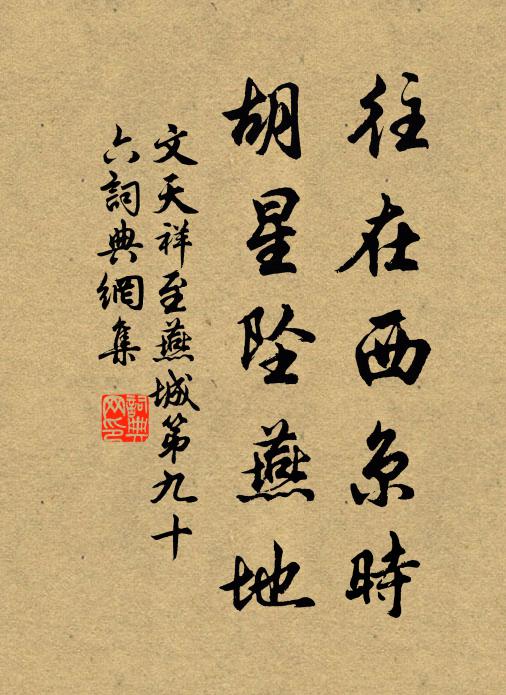 往在西京時
胡星坠燕地
文天祥至燕城第九十
六詞典網集
詞典網印